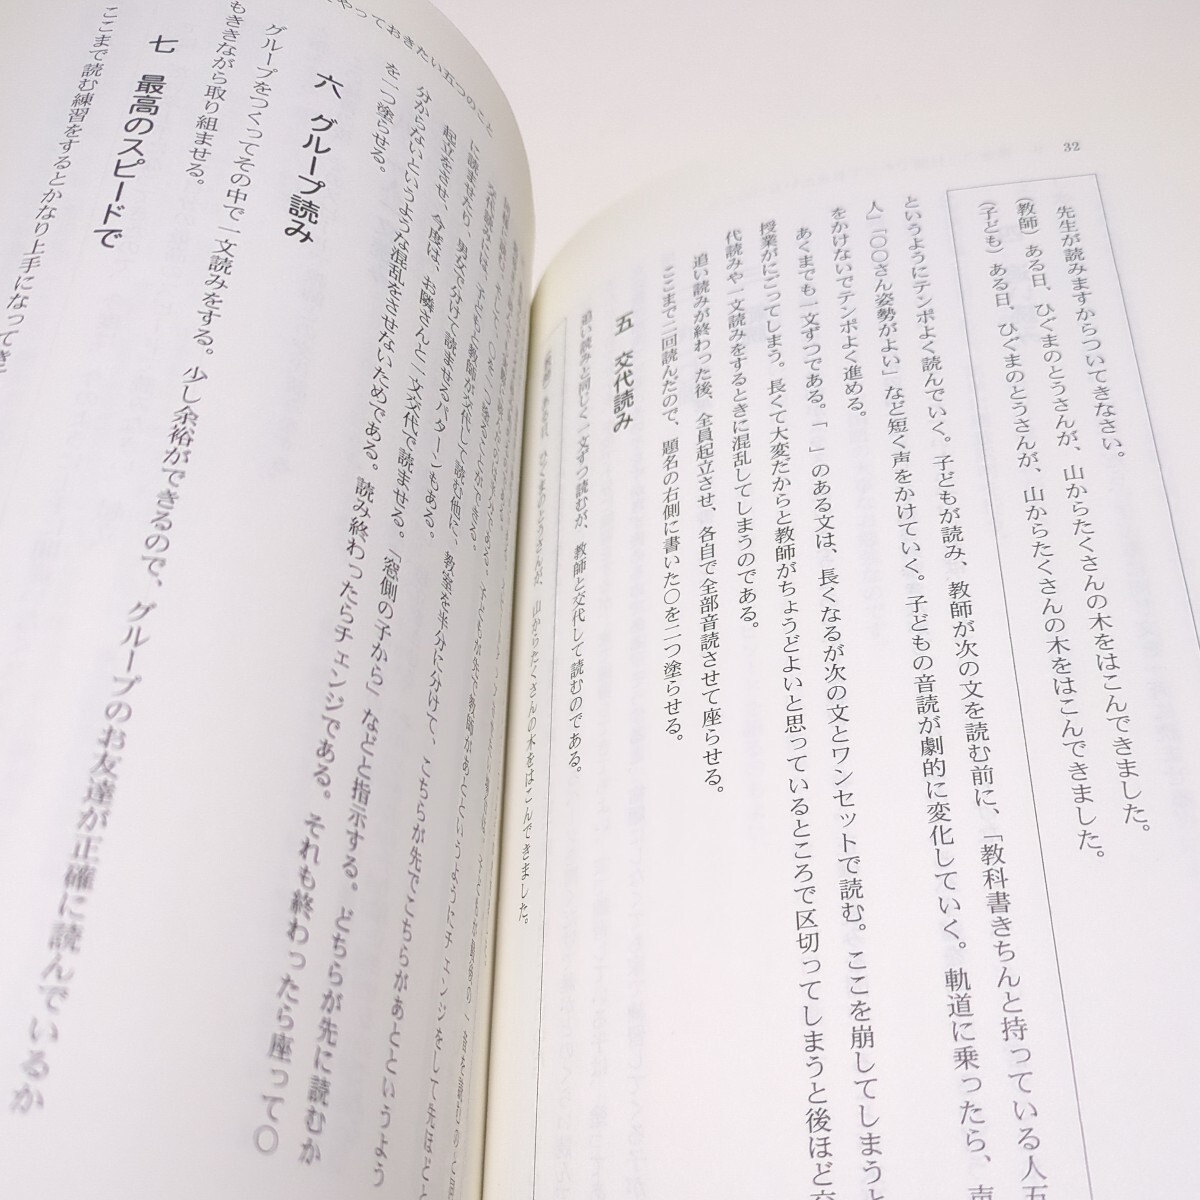 32
先生が読みますからついてきなさい。
(教師) ある日、ひぐまのとうさんが、山からたくさんの木をはこんできました。
(子ども) ある日、ひぐまのとうさんが、山からたくさんの木をはこんできました。
というようにテンポよく読んでいく。子どもが読み、教師が次の文を読む前に、「教科書きちんと持っている人五
人」「〇〇さん姿勢がよい」など短く声をかけていく。子どもの音読が劇的に変化していく。軌道に乗ったら、声
をかけないでテンポよく進める。
あくまでも一文ずつである。「 」のある文は、長くなるが次の文とワンセットで読む。ここを崩してしまうと
授業がにごってしまう。長くて大変だからと教師がちょうどよいと思っているところで区切ってしまうと後ほど交
代読みや一文読みをするときに混乱してしまうのである。
追い読みが終わった後、全員起立させ、各自で全部音読させて座らせる。
ここまで二回読んだので、題名の右側に書いた〇を二つ塗らせる。
五 交代読み
追い読みと同じく一文ずつ読むが、教師と交代して読むのである。
ある日、ひぐまのとうさんが、山からたくさんの木をはこんできました。
やっておきたい五つのこと
交代読みは、子どもと教師が交代して読む他に、教室を半分に分けて、こちらが先でこちらがあとというよう
に読ませたり、男女で分けて読ませるパターンもある。
起立をさせ、今度は、お隣さんと一文交代で読ませる。「窓側の子から」などと指示する。どちらが先に読むか
分からないというような混乱をさせないためである。読み終わったらチェンジである。それも終わったら座って〇
を一つ塗らせる。
六 グループ読み
グループをつくってその中で一文読みをする。少し余裕ができるので、グループのお友達が正確に読んでいるか
もききながら取り組ませる。
七 最高のスピードで
ここまで読む練習をするとかなり上手になってき